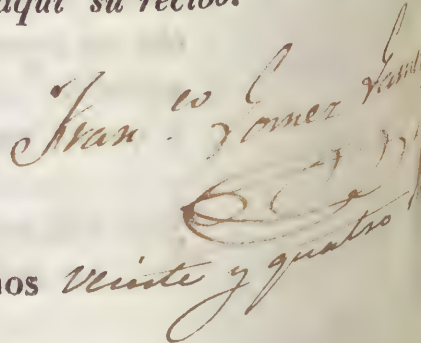 aquí su recibo.
Fran.co Gomez
nos veinte y quatro